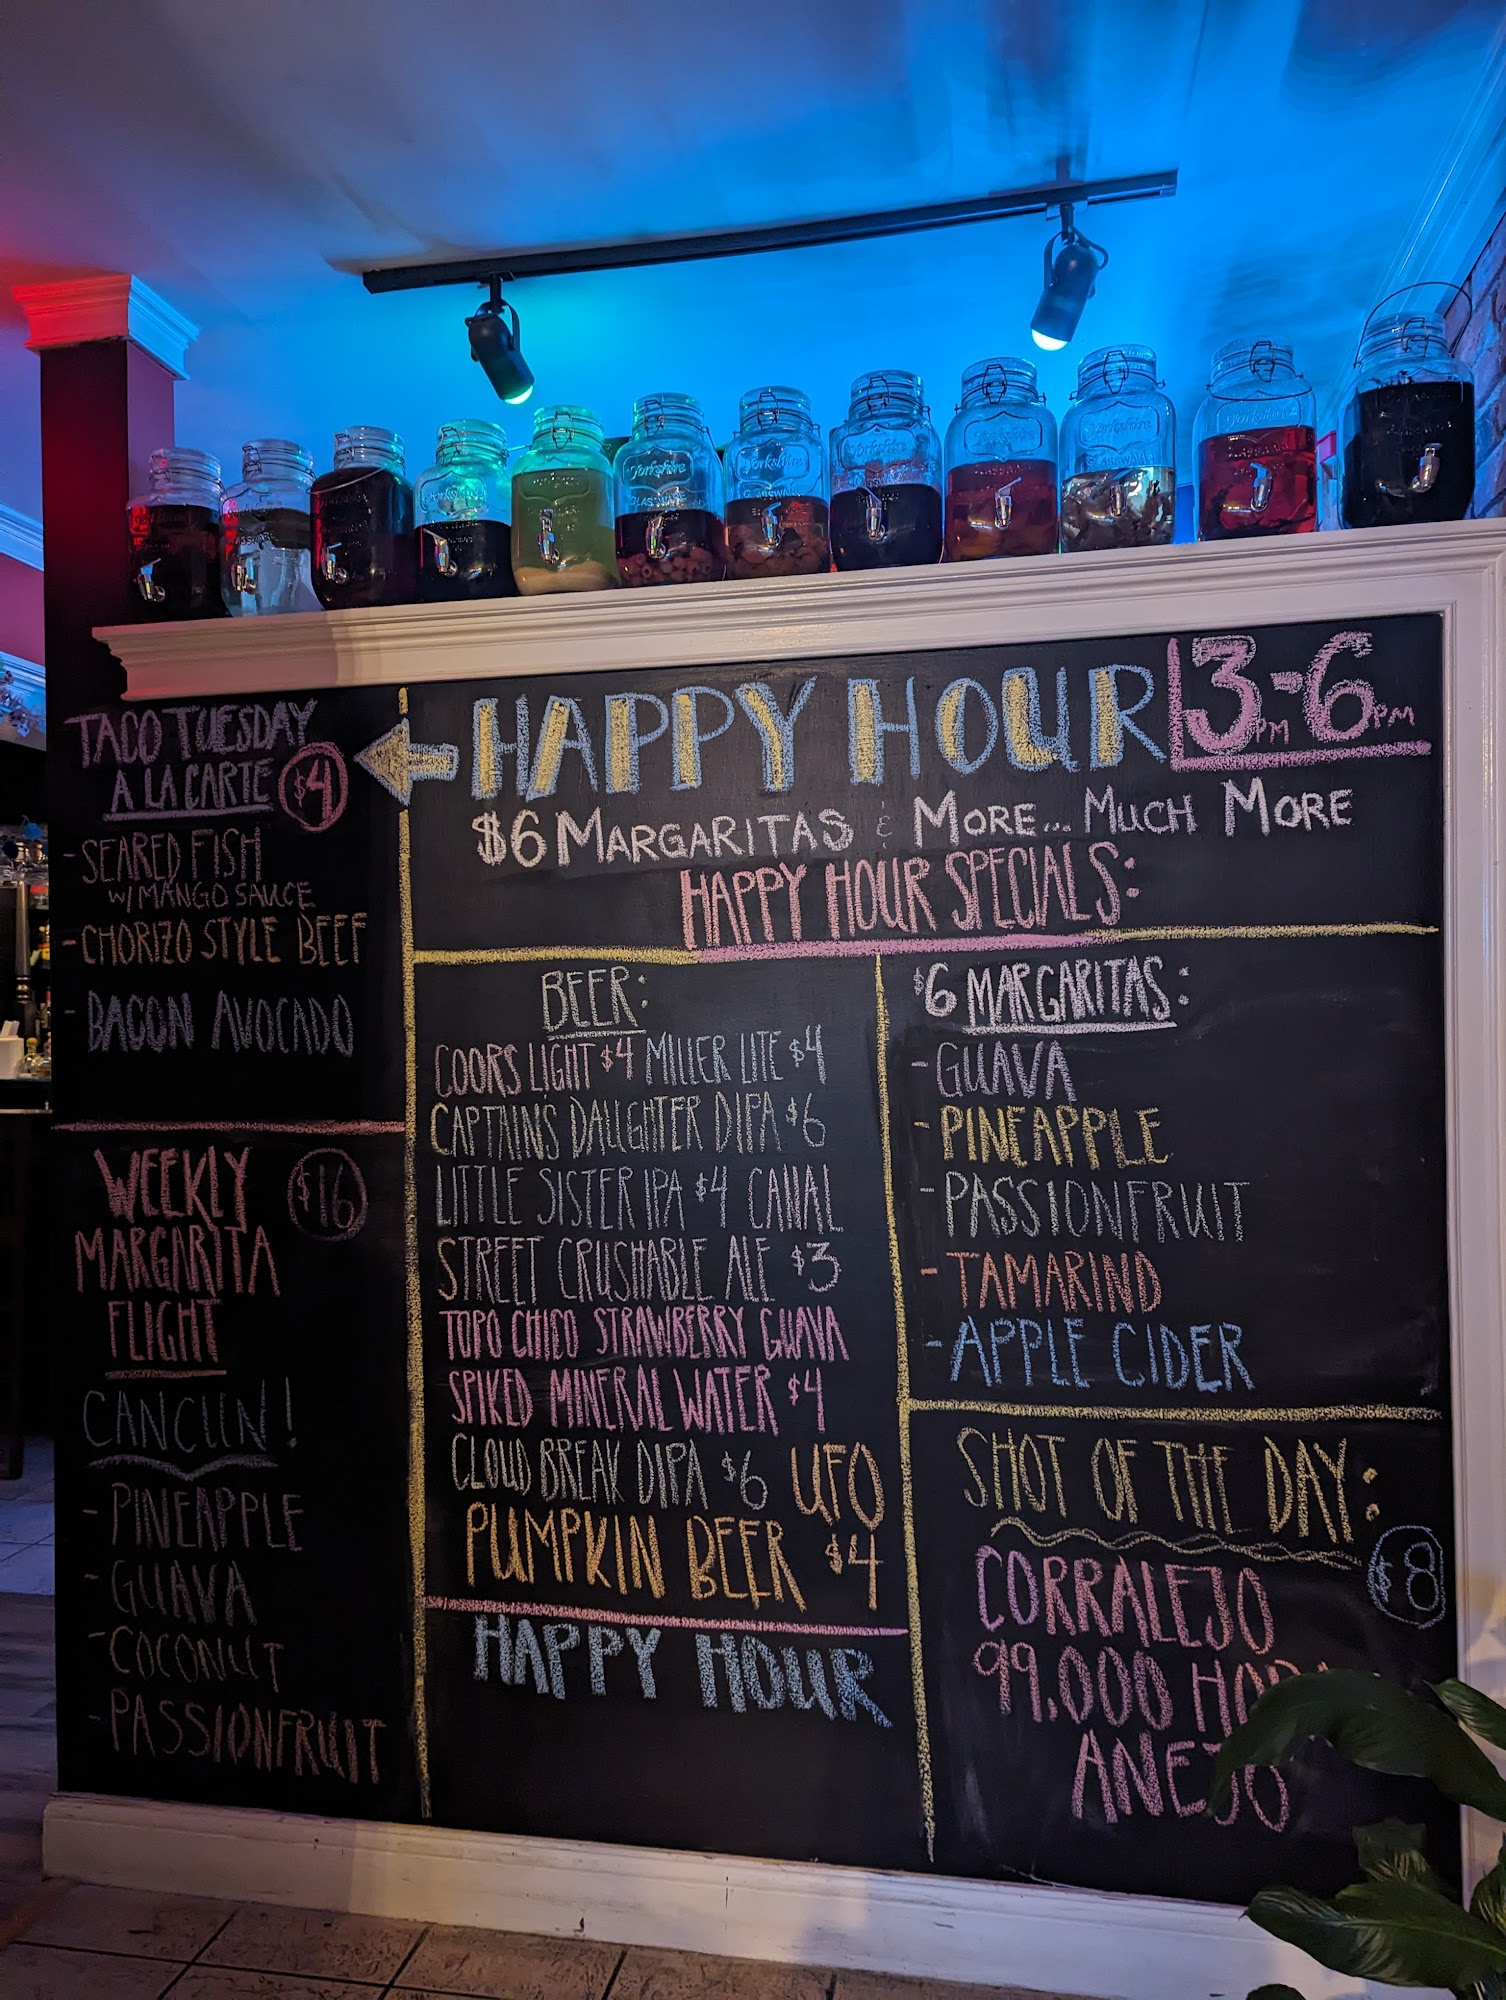 Yorkshire
GLASSWARE
Yorkshire
GLASSWARE
Yorkshire
GLASSWARE
Yorkshire
GLASSWARE
Yorkshire
TACO TUESDAY
A LA CARTE $4
- SEARED FISH
W/MANGO SAUCE
- CHORIZO STYLE BEEF
- BACON AVOCADO
WEEKLY $16
MARGARITA
FLIGHT
CANCUN!
- PINEAPPLE
- GUAVA
- COCONUT
- PASSIONFRUIT
HAPPY HOUR 3PM-6PM
$6 MARGARITAS & MORE... MUCH MORE
HAPPY HOUR SPECIALS:
BEER:
COORS LIGHT $4 MILLER LITE $4
CAPTAIN'S DAUGHTER DIPA $6
LITTLE SISTER IPA $4 CANAL
STREET CRUSHABLE ALE $3
TOPO CHICO STRAWBERRY GUAVA
SPIKED MINERAL WATER $4
CLOUD BREAK DIPA $6 UFO
PUMPKIN BEER $4
HAPPY HOUR
$6 MARGARITAS:
- GUAVA
- PINEAPPLE
- PASSIONFRUIT
- TAMARIND
- APPLE CIDER
SHOT OF THE DAY:
CORRALEJO $8
99,000
ANEJO